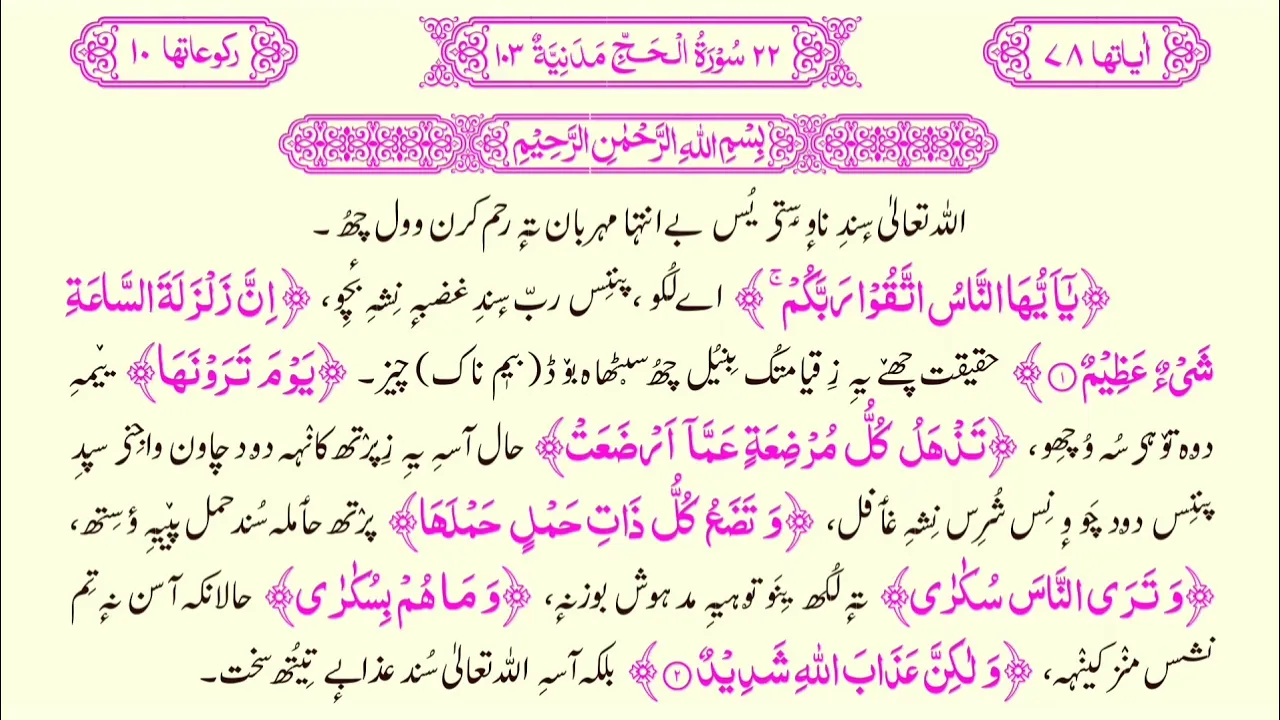 اٰیاتها ۷۸
۲۲ سُوْرَةُ الْحَجِّ مَدَنِیَّةٌ ۱۰۳
رکوعاتها ۱۰
بِسْمِ اللهِ الرَّحْمٰنِ الرَّحِیْمِ
اللہ تعالیٰ سٕندِ ناوٕ ستۍ یُس بے انتہا مہربان تہٕ رحم کرن وول چھُ ۔
﴿یٰۤاَیُّهَا النَّاسُ اتَّقُوْا رَبَّكُمْ ۚ﴾ اے لُکو ، پننِس ربّ سٕندِ غضبہٕ نِشہِ بٔچو، ﴿اِنَّ زَلْزَلَةَ السَّاعَةِ
شَیْءٌ عَظِیْمٌ ۱﴾ حقیقت چھےٚ یہِ زِ قیامتُک بُنیُل چھُ سٮ۪ٹھاہ بوٚڈ (بیٖم ناک) چیز ۔ ﴿یَوْمَ تَرَوْنَهَا﴾ ییٚمہِ
دوہ توٚہۍ سُہ وُچھِو، ﴿تَذْهَلُ كُلُّ مُرْضِعَةٍ عَمَّاۤ اَرْضَعَتْ﴾ حال آسہِ یہِ زِ پرٛتھ کانٛہہ دود چاون واجنۍ سپدِ
پننِس دود چوٕ ونِس شُرِس نِشہِ غٲفل، ﴿وَ تَضَعُ كُلُّ ذَاتِ حَمْلٍ حَمْلَهَا﴾ پرٛتھ حٲملہ سُند حمل پییہِ وٕستھ،
﴿وَ تَرَی النَّاسَ سُكٰرٰی﴾ تہٕ لُکھ یِنَو توٚہیہِ مدہوش بوزنہٕ، ﴿وَ مَا هُمْ بِسُكٰرٰی﴾ حالانکہ آسن نہٕ تِم
نشس منٛز کینٛہہ، ﴿وَ لٰكِنَّ عَذَابَ اللهِ شَدِیْدٌ ۲﴾ بلکہ آسہِ اللہ تعالیٰ سُند عذابٕے تِیُتھ سخت ۔